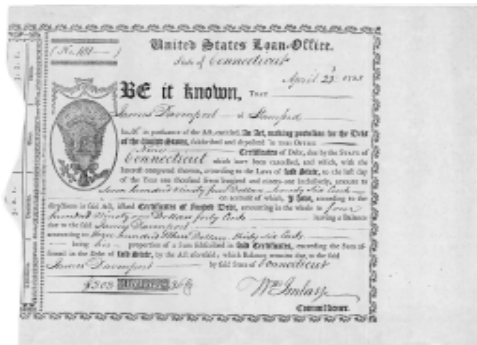 (No. 101
United States Loan-Office.
State of Connecticut
April 23
BE it known, THAT
James Davenport of Stamford
in pursuance of the Act, entitled, An Act, making provision for the Debt
of the United States, subscribed and deposited in THIS OFFICE
Nine Certificates of Debt, due by the STATE of
Connecticut which have been cancelled, and which, with the
Interest computed thereon, according to the Laws of said State, to the last day
of the Year one thousand seven hundred and ninety-one inclusively, amount to
Seven hundred Ninety four Dollars Seventy Six Cents
on account of which, I have, according to the
directions in said Act, issued Certificates of Funded Debt, amounting in the whole to four
hundred Ninety one Dollars forty Cents leaving a Balance
due to the said James Davenport
amounting to three hundred three Dollars thirty six Cents
being his proportion of a Sum subscribed in said Certificates, exceeding the Sum
assumed in the Debt of said State, by the Act aforesaid; which Balance remains due to the said
James Davenport by said State of Connecticut
$303 DOLLARS 36
Wm Imlay
Commissioner.